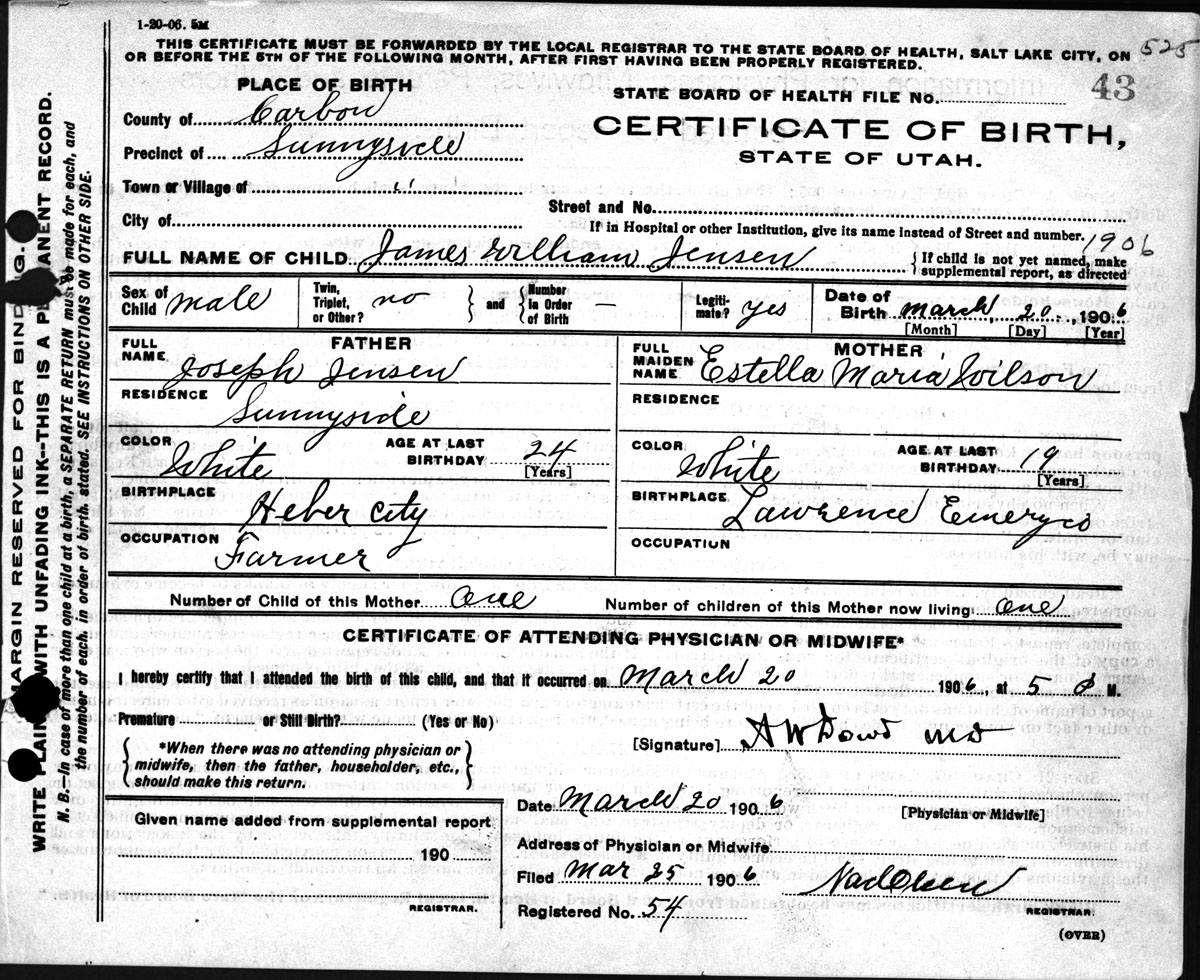 1-20-06. 5M
THIS CERTIFICATE MUST BE FORWARDED BY THE LOCAL REGISTRAR TO THE STATE BOARD OF HEALTH, SALT LAKE CITY, ON
OR BEFORE THE 5TH OF THE FOLLOWING MONTH, AFTER FIRST HAVING BEEN PROPERLY REGISTERED.
525
PLACE OF BIRTH
STATE BOARD OF HEALTH FILE No. 43
County of Carbon
CERTIFICATE OF BIRTH,
Precinct of Sunnyside
STATE OF UTAH.
Town or Village of "
Street and No.
City of
If in Hospital or other Institution, give its name instead of Street and number.
1906
FULL NAME OF CHILD James William Jensen
{ If child is not yet named, make
supplemental report, as directed
Sex of Child male
Twin, Triplet, or Other? no } and { Number in Order of Birth
Legiti-mate? yes
Date of Birth March 20, 1906
[Month] [Day] [Year]
FATHER
FULL NAME Joseph Jensen
RESIDENCE Sunnyside
COLOR White AGE AT LAST BIRTHDAY 24 [Years]
BIRTHPLACE Heber City
OCCUPATION Farmer
MOTHER
FULL MAIDEN NAME Estella Maria Wilson
RESIDENCE
COLOR White AGE AT LAST BIRTHDAY 19 [Years]
BIRTHPLACE Lawrence Emery co
OCCUPATION
Number of Child of this Mother One Number of children of this Mother now living One
CERTIFICATE OF ATTENDING PHYSICIAN OR MIDWIFE*
I hereby certify that I attended the birth of this child, and that it occurred on March 20 1906, at 5 M.
Premature or Still Birth? (Yes or No)
{ *When there was no attending physician or
midwife, then the father, householder, etc.,
should make this return. }
[Signature] A W Dowd MD
Date March 20 1906 [Physician or Midwife]
Given name added from supplemental report
190
REGISTRAR.
Address of Physician or Midwife.
Filed Mar 25 1906 Olsen
Registered No. 54 REGISTRAR.
(OVER)
MARGIN RESERVED FOR BINDING.
WRITE PLAINLY WITH UNFADING INK--THIS IS A PERMANENT RECORD.
N. B.--In case of more than one child at a birth, a SEPARATE RETURN must be made for each, and
the number of each, in order of birth, stated. SEE INSTRUCTIONS ON OTHER SIDE.